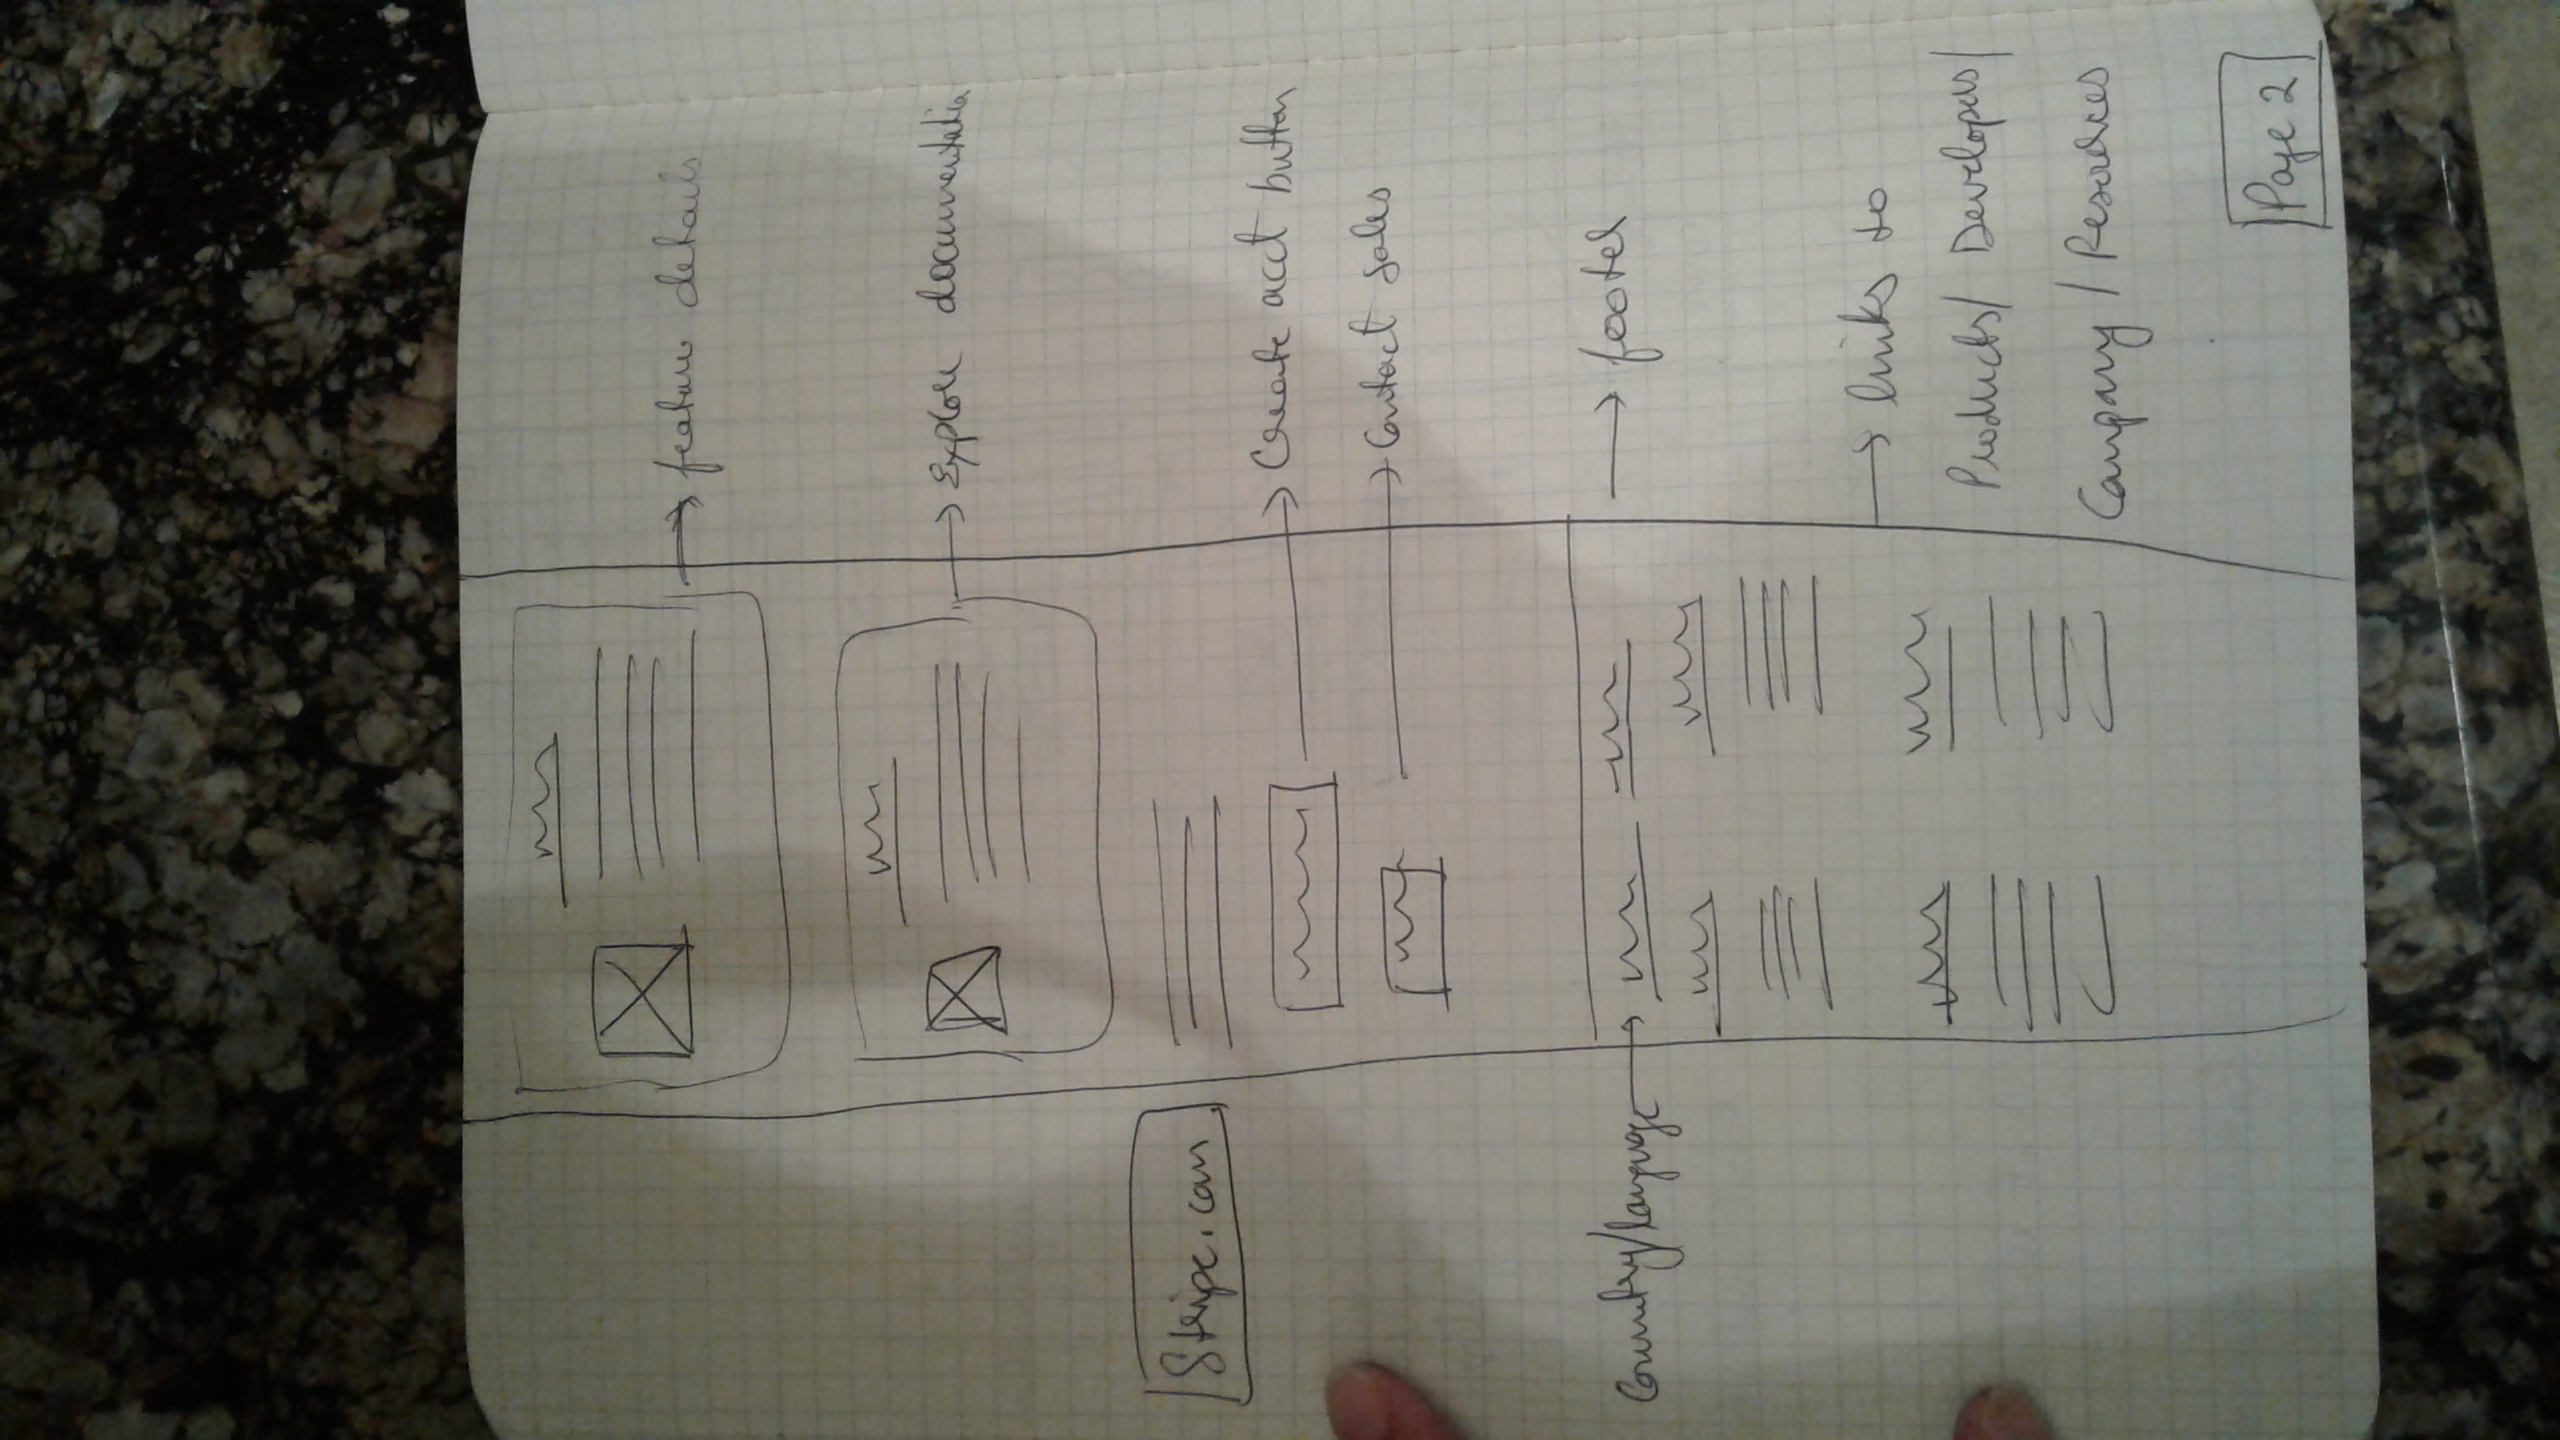 feature details
Explore documentation
Stripe.com
Create acct button
Contact sales
Country/language
footer
links to
Products/ Developers/
Company / Resources
Page 2